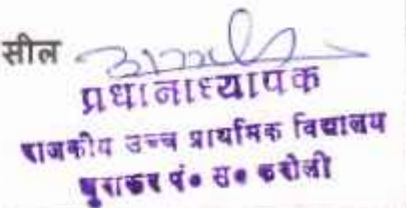 सील
प्रधानाध्यापक
राजकीय उच्च प्राथमिक विद्यालय
पं० स० करौली